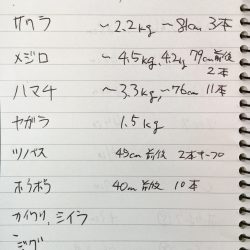 サワラ ～2.2kg ～81cm 3本
メジロ ～4.5kg, 4.2kg 79cm前後 2本
ハマチ ～3.3kg, ～76cm 11本
ヤガラ 1.5kg
ツバス 45cm前後 2本
ホウボウ 40cm前後 10本
カイワリ, シイラ
ジグ